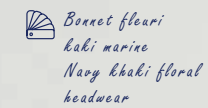 Bonnet fleuri
kaki marine
Navy khaki floral
headwear